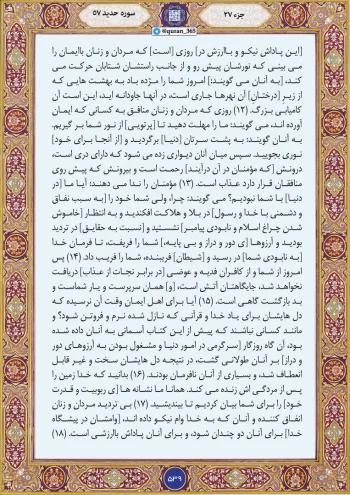 جزء ۲۷
سوره حدید ۵۷
@quran_365
[این پاداش نیکو و باارزش در] روزی [است] که مردان و زنان باایمان را
می بینی که نورشان پیش رو و از جانب راستشان شتابان حرکت می
کند، [به آنان می گویند:] امروز شما را مژده باد به بهشت هایی که
از زیرِ [درختانِ] آن نهرها جاری است، در آنها جاودانه اید، این است آن
کامیابی بزرگ. (۱۲) روزی که مردان و زنان منافق به کسانی که ایمان
آورده اند، می گویند: ما را مهلت دهید تا [پرتویی] از نور شما بر گیریم.
به آنان گویند: به پشت سرتان [دنیا] برگردید و [از آنجا برای خود]
نوری بجویید. سپس میان آنان دیواری زده می شود که دارای دری است،
درونش [که مؤمنان در آن درآیند] رحمت است و بیرونش که پیش روی
منافقان قرار دارد عذاب است. (۱۳) مؤمنان را ندا می دهند: آیا ما [در
دنیا] با شما نبودیم؟ می گویند: چرا، ولی شما خود را [به سبب نفاق
و دشمنی با خدا و رسول] در بلا و هلاکت افکندید و به انتظار [خاموش
شدن چراغ اسلام و نابودی پیامبر] نشستید و [نسبت به حقایق] در تردید
بودید و آرزوها [ی دور و دراز و بی پایه]، شما را فریفت، تا فرمان خدا
[به نابودی شما] در رسید و [شیطان] فریبنده، شما را فریب داد. (۱۴) پس
امروز از شما و از کافران فدیه و عوضی [در برابر نجات از عذاب] دریافت
نخواهد شد، جایگاهتان آتش است، [و] همان سرپرست و یار شماست و
بد بازگشت گاهی است. (۱۵) آیا برای اهل ایمان وقت آن نرسیده که
دل هایشان برای یاد خدا و قرآنی که نازل شده نرم و فروتن شود؟ و
مانند کسانی نباشند که پیش از این کتاب آسمانی به آنان داده شده
بود، آن گاه روزگار [سرگرمی در امور دنیا و مشغول بودن به آرزوهای دور
و دراز] بر آنان طولانی گشت، در نتیجه دل هایشان سخت و غیر قابل
انعطاف شد، و بسیاری از آنان نافرمان بودند. (۱۶) بدانید که خدا زمین را
پس از مردگی اش زنده می کند. همانا ما نشانه ها [ی ربوبیت و قدرت
خود] را برای شما بیان کردیم تا بیندیشید. (۱۷) بی تردید مردان و زنان
انفاق کننده و آنان که به خدا وام نیکو داده اند، [وامشان در پیشگاه
خدا] برای آنان دو چندان شود، و برای آنان پاداش باارزشی است. (۱۸)
۵۳۹